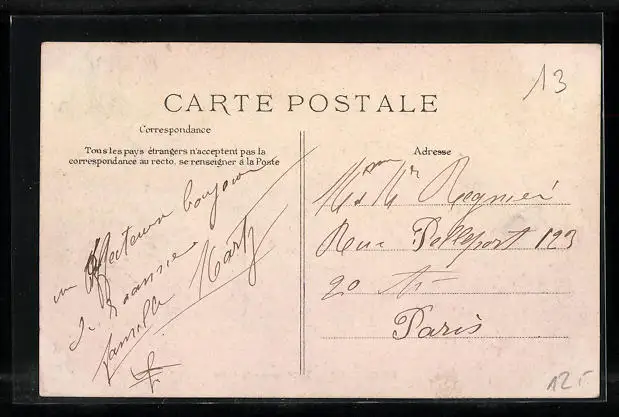 13
CARTE POSTALE
Correspondance
Tous les pays étrangers n'acceptent pas la
correspondance au recto, se renseigner à la Poste
un affectueux bonjour
de
famille Martz
Adresse
Mr Regnier
Rue Pelleport 123
20
Paris
12.-